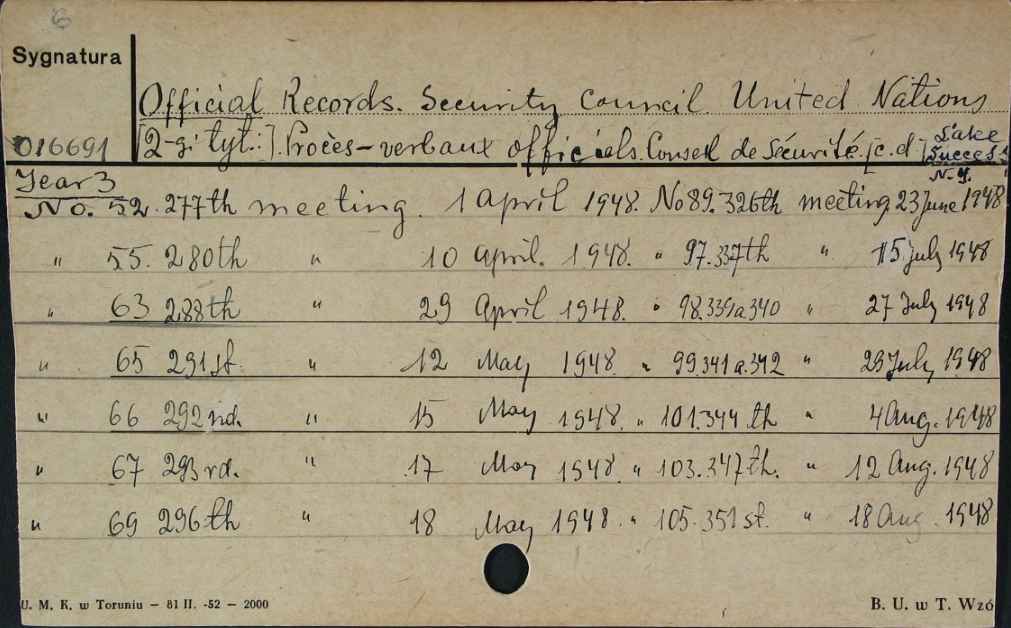 6
Sygnatura
Official Records. Security Council United Nations
016691 [2-gi tyt.:]. Procès-verbaux officiels. Conseil de Sécurité. [c.d.] Lake Success N.Y.
Year 3
No. 52. 277th meeting. 1 April 1948. No 89. 326th meeting 23 June 1948
" 55. 280th " 10 April. 1948. " 97. 337th " 15 July 1948
" 63 288th " 29 April 1948. " 98. 339 a 340 " 27 July 1948
" 65 291st. " 12 May 1948. " 99. 341 a. 342 " 29 July 1948
" 66 292nd. " 15 May 1948. " 101. 344 th " 4 Aug. 1948
" 67 293rd. " 17 May 1948. " 103. 347 th. " 12 Aug. 1948
" 69 296th " 18 May 1948. " 105. 351 st. " 18 Aug. 1948
U. M. K. w Toruniu — 81 II. -52 — 2000
B. U. w T. Wzó